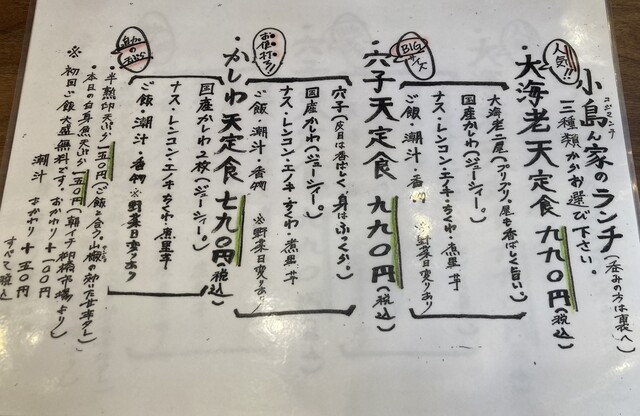 小島ん家のランチ(呑みの方は裏へ)
コジマンチ
三種類からお選び下さい。
人気!!
大海老天定食 九九〇円(税込)
大海老二尾(プリプリ。尾も香ばしく旨い)
国産かしわ(ジューシィー。)
ナス・レンコン・エノキ・ちくわ・煮里芋
ご飯・潮汁・香物 ※野菜日変りあり
BIGサイズ
穴子天定食 九九〇円(税込)
穴子(皮目は香ばしく、身はふっくら。)
国産かしわ(ジューシィー。)
ナス・レンコン・エノキ・ちくわ・煮里芋
ご飯・潮汁・香物 ※野菜日変りあり
お値打ち!!
かしわ天定食 七九〇円(税込)
国産かしわ2枚(ジューシィー。)
ナス・レンコン・エノキ・ちくわ・煮里芋
ご飯・潮汁・香物 ※野菜日変りあり
・半熟卵天ぷら 一五〇円(ご飯と合う、山椒の効いた甘辛タレ)
・本日の白身魚天ぷら 一五〇円(朝イチ柳橋市場より)
※初回ご飯大盛無料です。おかわり+一〇〇円
潮汁 おかわり+一五〇円
すべて税込